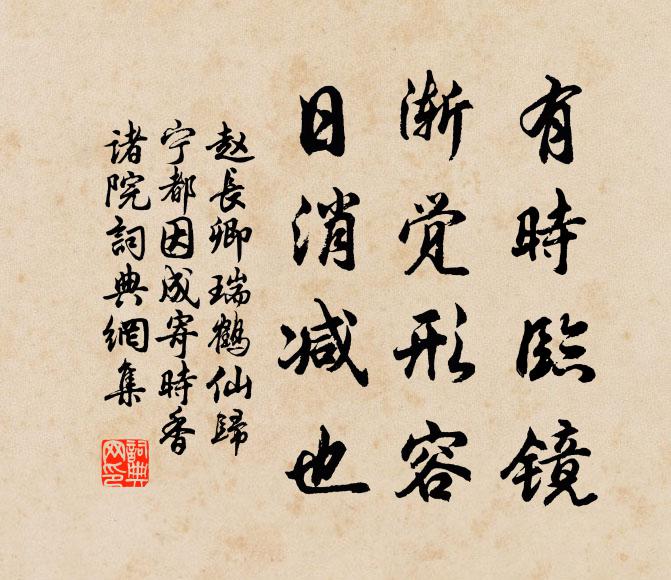 有時臨镜
渐觉形容
日消减也
赵長卿瑞鹤仙歸
宁都因成寄時香
诸院詞典網集
詞典
网印